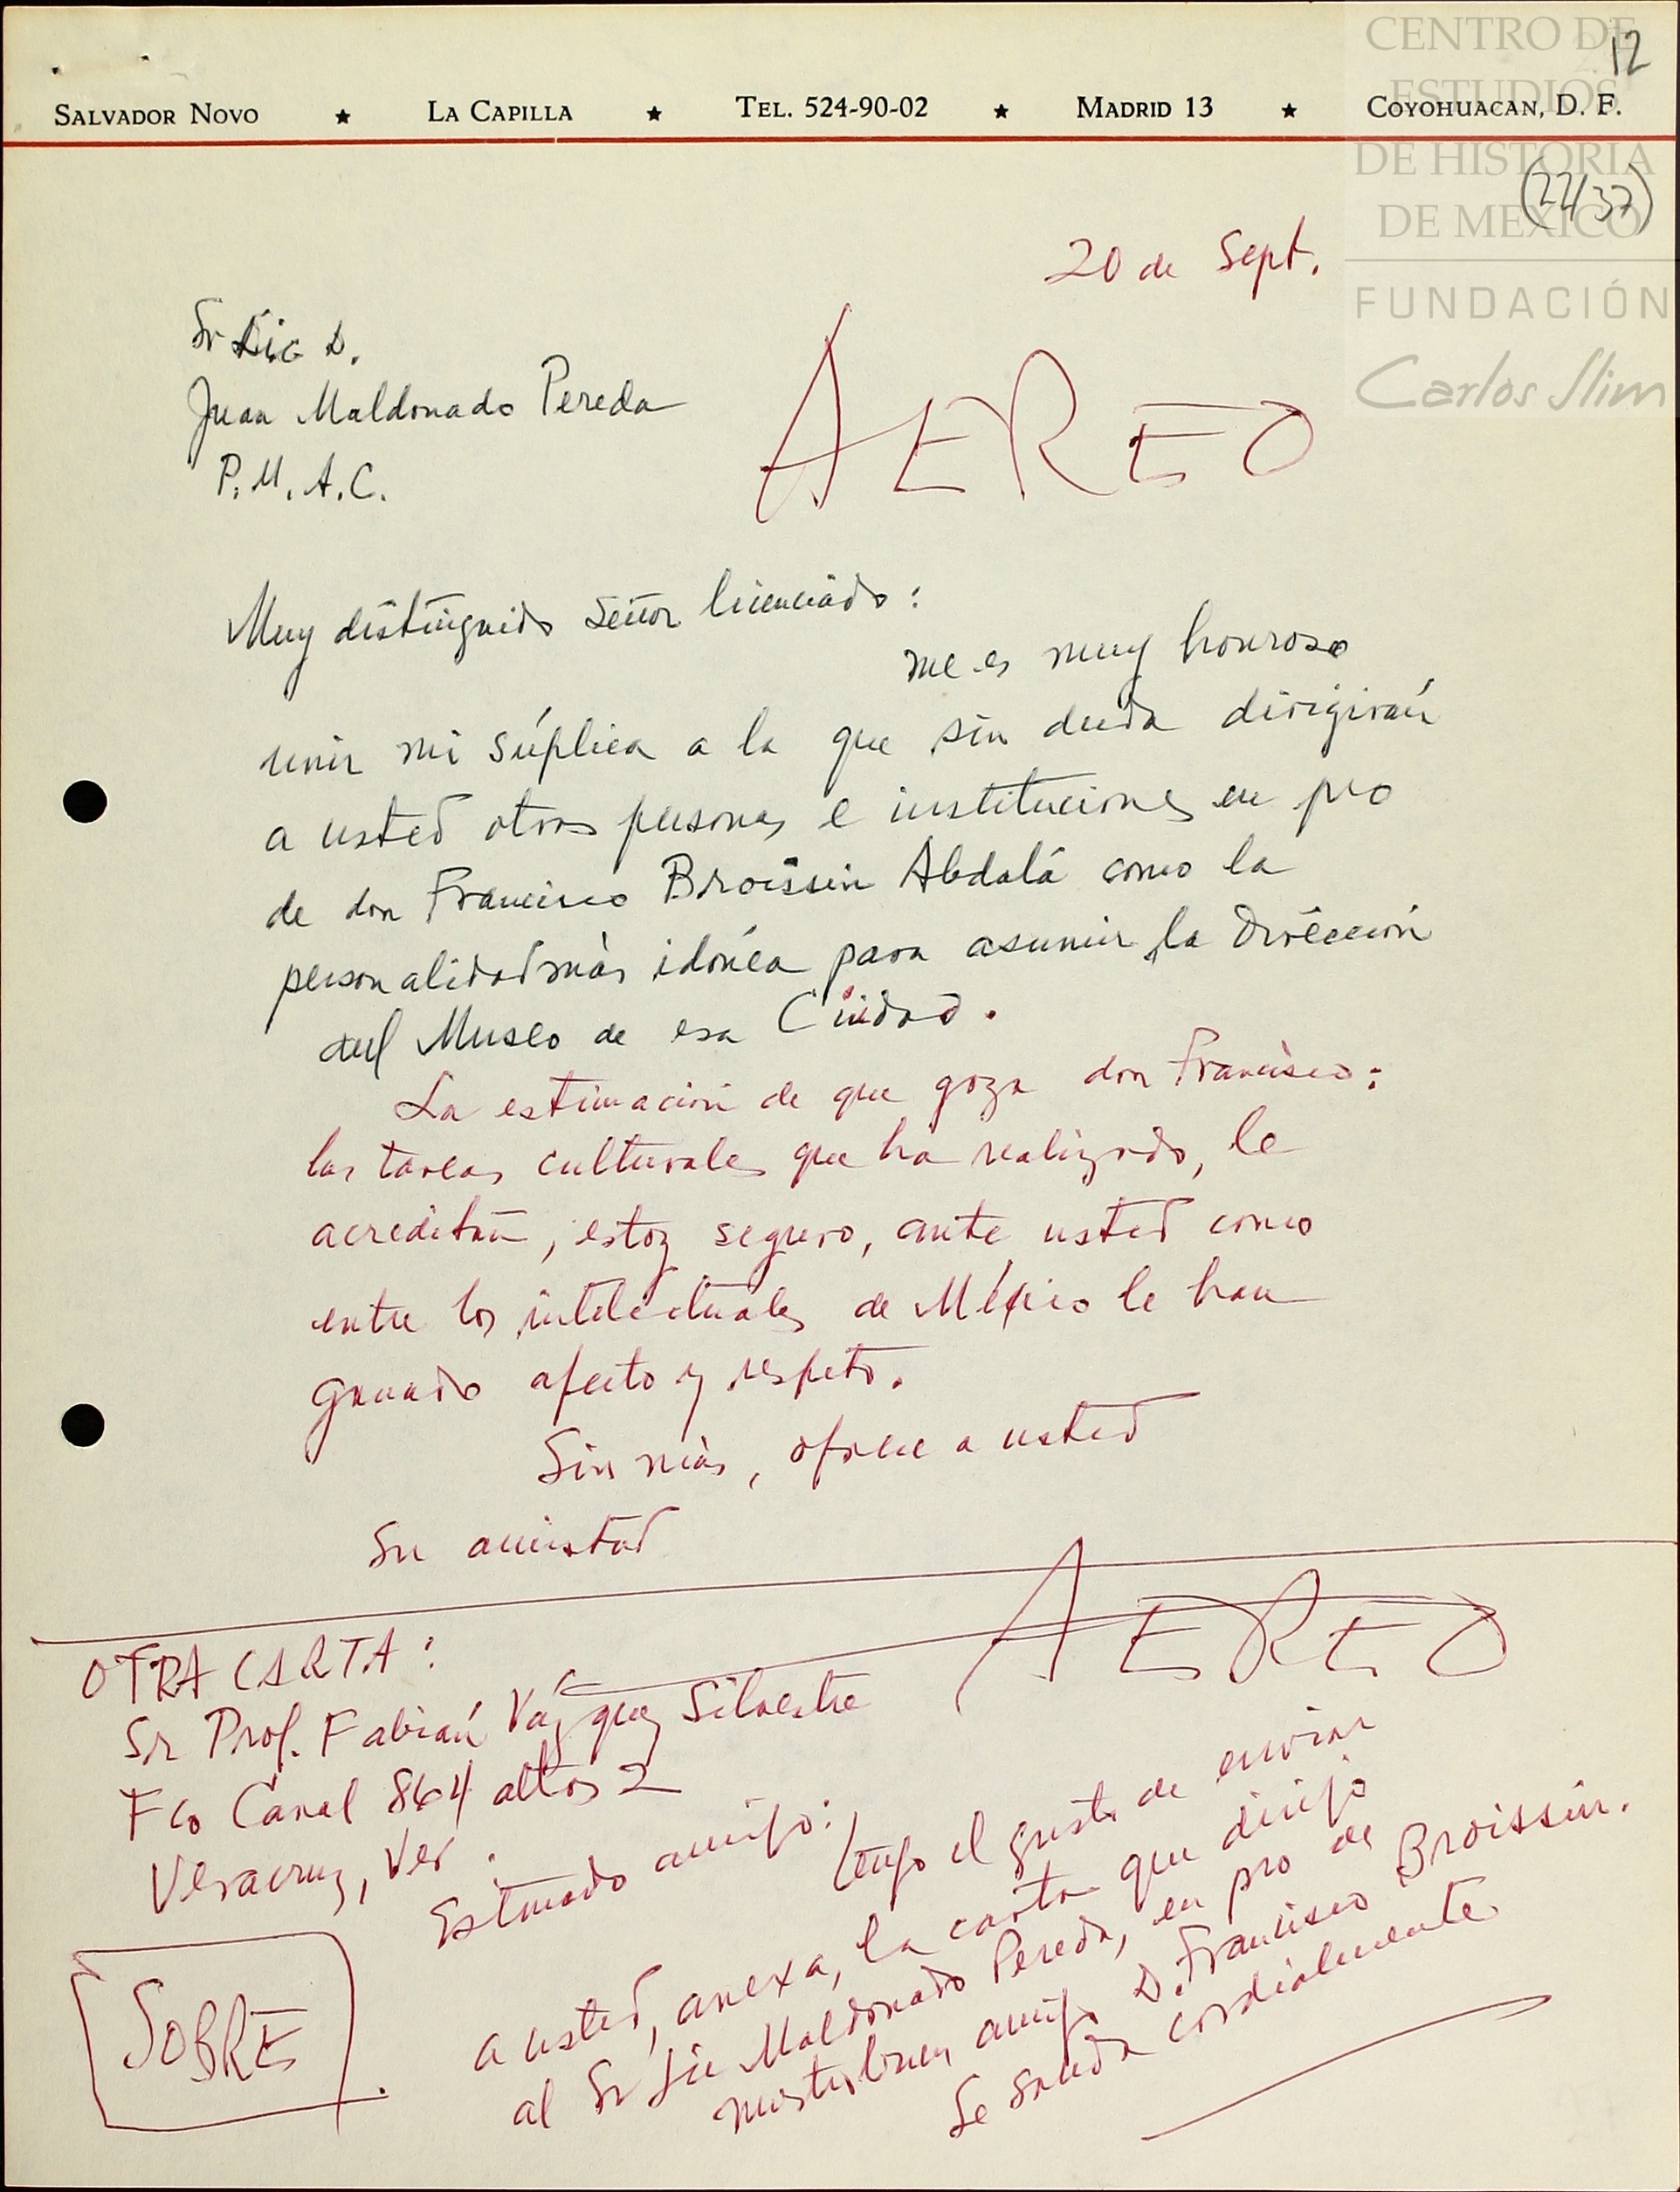 12
SALVADOR NOVO ★ LA CAPILLA ★ TEL. 524-90-02 ★ MADRID 13 ★ COYOHUACAN, D. F.
CENTRO DE
ESTUDIOS
DE HISTORIA
DE MEXICO
(22/37)
FUNDACIÓN
Carlos Slim
20 de Sept.
Sr Lic D.
Juan Maldonado Pereda
P. M. A. C.
AEREO
Muy distinguido Señor licenciado:
me es muy honroso
unir mi súplica a la que sin duda dirigirán
a usted otras personas e instituciones en pro
de don Francisco Broissin Abdalá como la
personalidad más idónea para asumir la Dirección
del Museo de esa Ciudad.
La estimación de que goza don Francisco:
las tareas culturales que ha realizado, le
acreditan, estoy seguro, ante usted como
entre los intelectuales de México le han
ganado afecto y respeto.
Sin más, ofrece a usted
su amistad
AEREO
OTRA CARTA:
Sr Prof. Fabián Vázquez Silvestre
Fco Canal 864 altos 2
Veracruz, Ver.
Estimado amigo:
tengo el gusto de enviar
a usted, anexa, la carta que dirijo
al Sr Lic Maldonado Pereda, en pro de
nuestro buen amigo D. Francisco Broissin.
Le saluda cordialmente
SOBRE